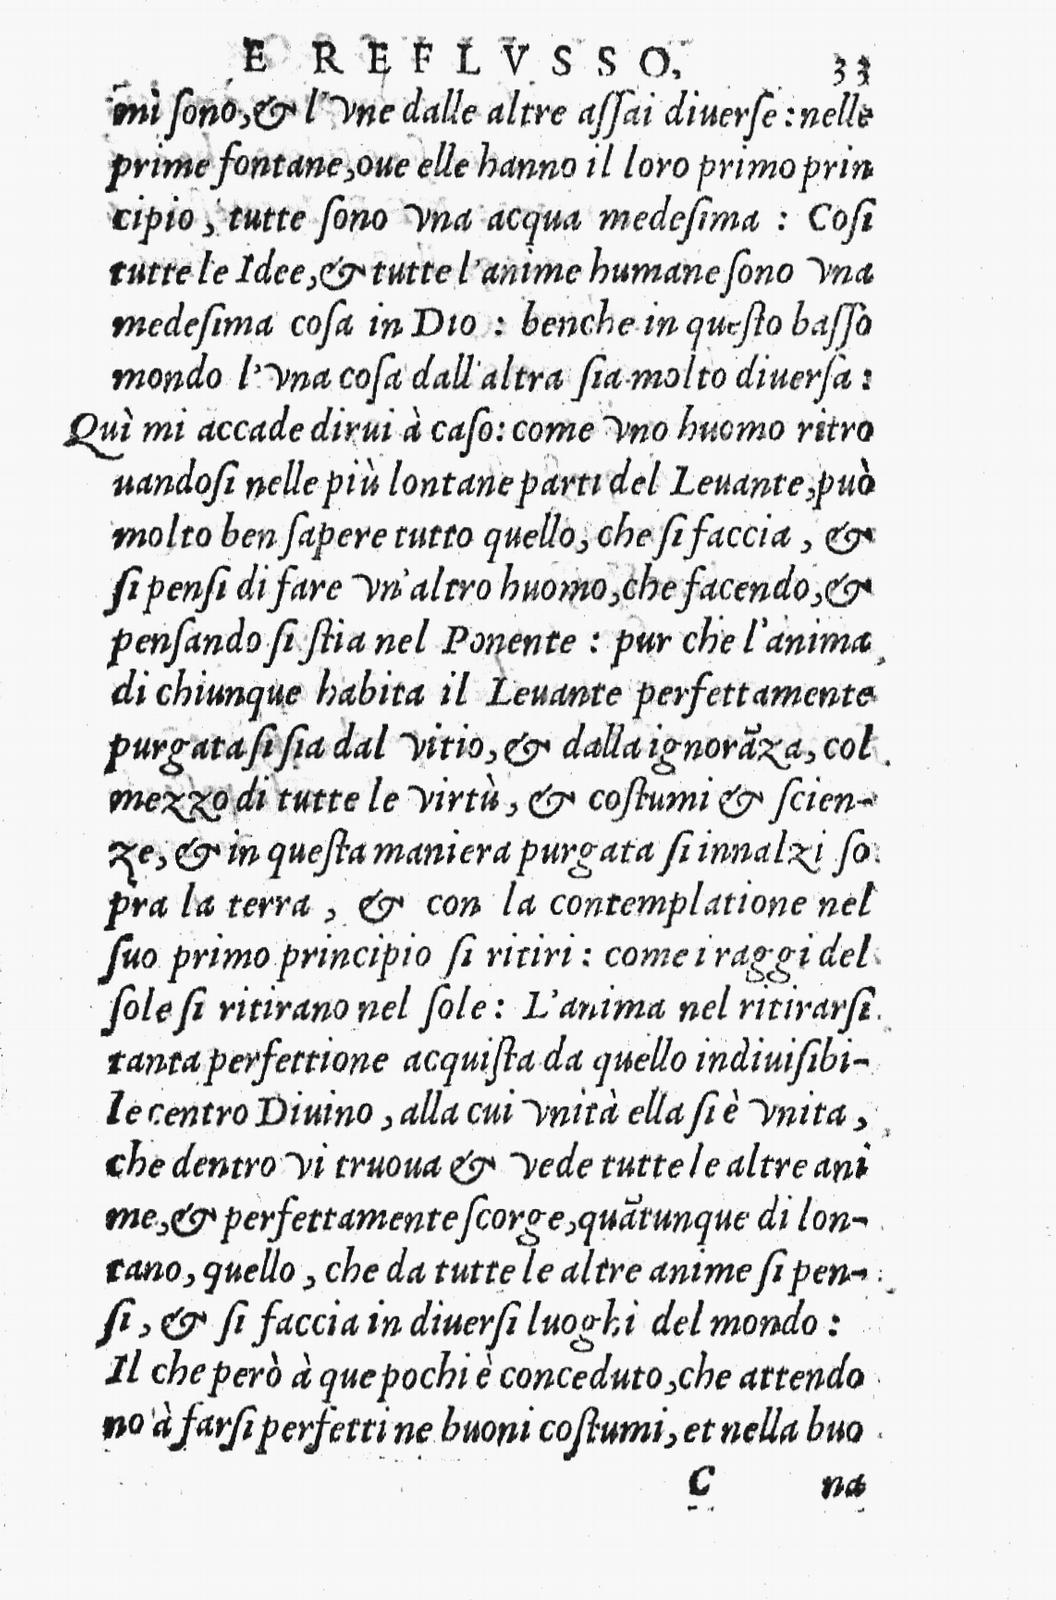 E REFLVSSO, 33
mì ſono, & l'vne dalle altre aſſai diuerſe: nelle
prime fontane, oue elle hanno il loro primo prin
cipio, tutte ſono vna acqua medeſima : Coſi
tutte le Idee, & tutte l'anime humane ſono vna
medeſima coſa in DIO : benche in queſto baſſo
mondo l'vna coſa dall'altra ſia molto diuerſa:
Quì mi accade dirui à caſo: come vno huomo ritro
uandoſi nelle più lontane parti del Leuante, può
molto ben ſapere tutto quello, che ſi faccia, &
ſi penſi di fare vn'altro huomo, che facendo, &
penſando ſi ſtia nel Ponente : pur che l'anima
di chiunque habita il Leuante perfettamente
purgata ſi ſia dal vitio, & dalla ignorãza, col
mezzo di tutte le virtù, & coſtumi & ſcien-
ze, & in queſta maniera purgata ſi innalzi ſo
pra la terra, & con la contemplatione nel
ſuo primo principio ſi ritiri: come i raggi del
ſole ſi ritirano nel ſole: L'anima nel ritirarſi
tanta perfettione acquiſta da quello indiuiſibi-
le centro Diuino, alla cui vnità ella ſi è vnita,
che dentro vi truoua & vede tutte le altre ani
me, & perfettamente ſcorge, quãtunque di lon-
tano, quello, che da tutte le altre anime ſi pen-
ſi, & ſi faccia in diuerſi luoghi del mondo :
Il che però à que pochi è conceduto, che attendo
no à farſi perfetti ne buoni coſtumi, et nella buo
C na